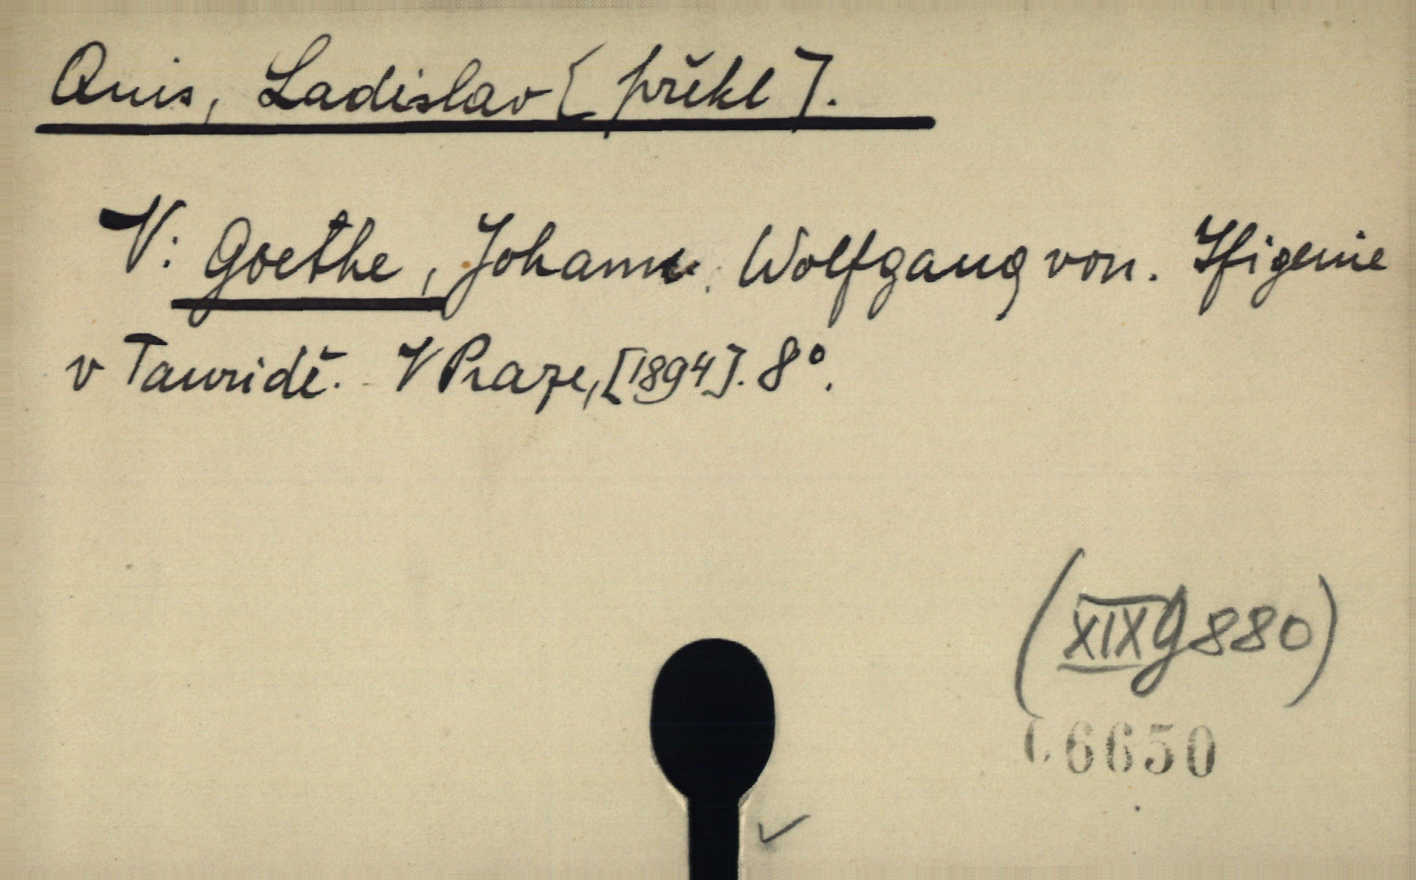 Quis, Ladislav [překl].
V: Goethe, Johann Wolfgang von. Ifigenie
v Tauridě. V Praze, [1894]. 8°.
(XIX g 880)
6650